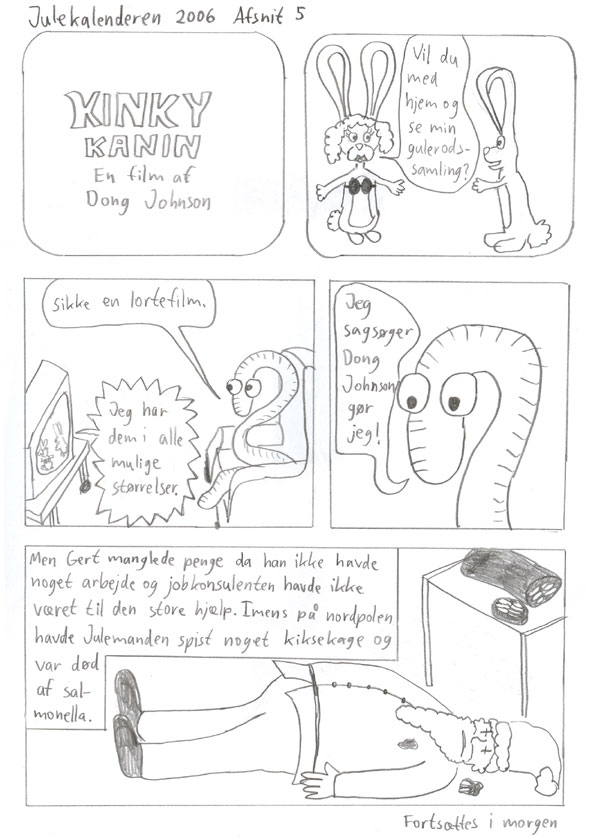 Julekalenderen 2006 Afsnit 5
KINKY
KANIN
En film af
Dong Johnson
Vil du
med
hjem og
se min
gulerods-
samling?
Sikke en lortefilm.
Jeg har
dem i alle
mulige
størrelser.
Jeg
sagsøger
Dong
Johnson
gør
jeg!
Men Gert manglede penge da han ikke havde
noget arbejde og jobkonsulenten havde ikke
været til den store hjælp. Imens på nordpolen
havde Julemanden spist noget kiksekage og
var død
af sal-
monella.
Fortsættes i morgen